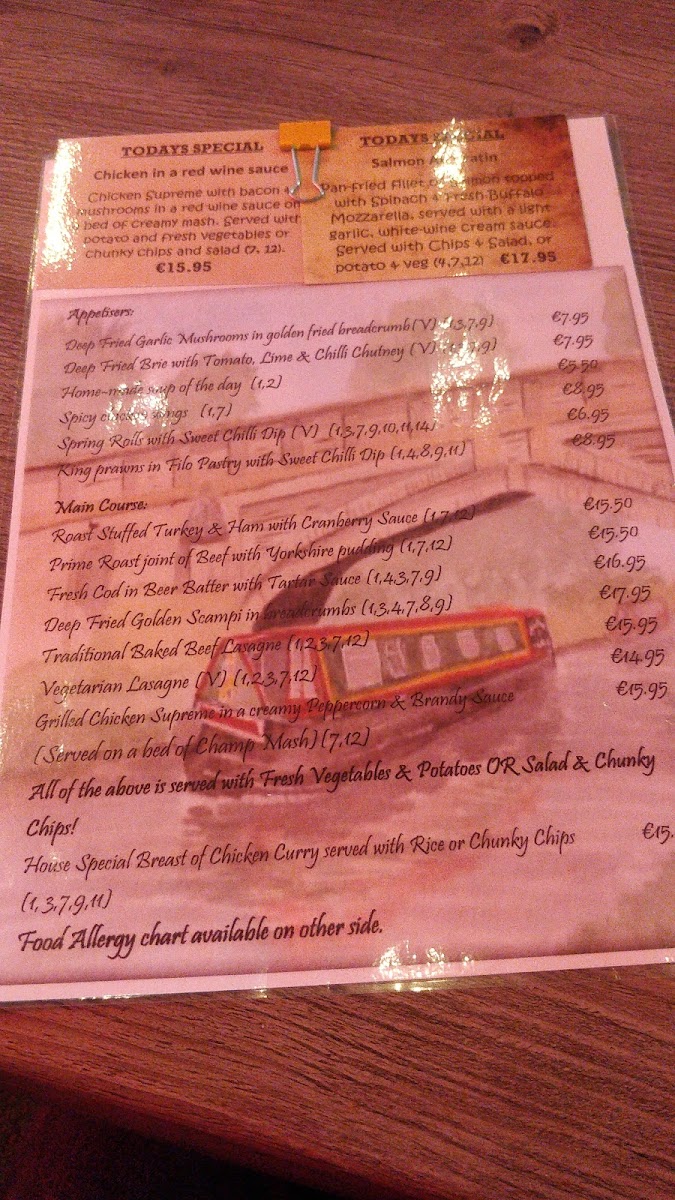 TODAYS SPECIAL
Chicken in a red wine sauce
Chicken Supreme with bacon +
mushrooms in a red wine sauce on
a bed of creamy mash. Served with
potato and fresh vegetables or
chunky chips and salad (7, 12).
€15.95
TODAYS SPECIAL
Salmon Au Gratin
Pan-fried fillet of salmon topped
with Spinach & Fresh Buffalo
Mozzarella, served with a light
garlic, white-wine cream sauce.
Served with Chips & Salad, or
potato & veg (4,7,12) €17.95
Appetisers:
Deep Fried Garlic Mushrooms in golden fried breadcrumb(V) (1,3,7,9) €7.95
Deep Fried Brie with Tomato, Lime & Chilli Chutney (V) €7.95
Home-made soup of the day (1,2) €5.50
Spicy chicken wings (1,7) €8.95
Spring Rolls with Sweet Chilli Dip (V) (1,3,7,9,10,11,14) €6.95
King prawns in Filo Pastry with Sweet Chilli Dip (1,4,8,9,11) €8.95
Main Course:
Roast Stuffed Turkey & Ham with Cranberry Sauce (1,7,12) €15.50
Prime Roast joint of Beef with Yorkshire pudding (1,7,12) €15.50
Fresh Cod in Beer Batter with Tartar Sauce (1,4,3,7,9) €16.95
Deep Fried Golden Scampi in breadcrumbs (1,3,4,7,8,9) €17.95
Traditional Baked Beef Lasagne (1,2,3,7,12) €15.95
Vegetarian Lasagne (V) (1,2,3,7,12) €14.95
Grilled Chicken Supreme in a creamy Peppercorn & Brandy Sauce €15.95
(Served on a bed of Champ Mash) (7,12)
All of the above is served with Fresh Vegetables & Potatoes OR Salad & Chunky
Chips!
House Special Breast of Chicken Curry served with Rice or Chunky Chips €15.
(1,3,7,9,11)
Food Allergy chart available on other side.